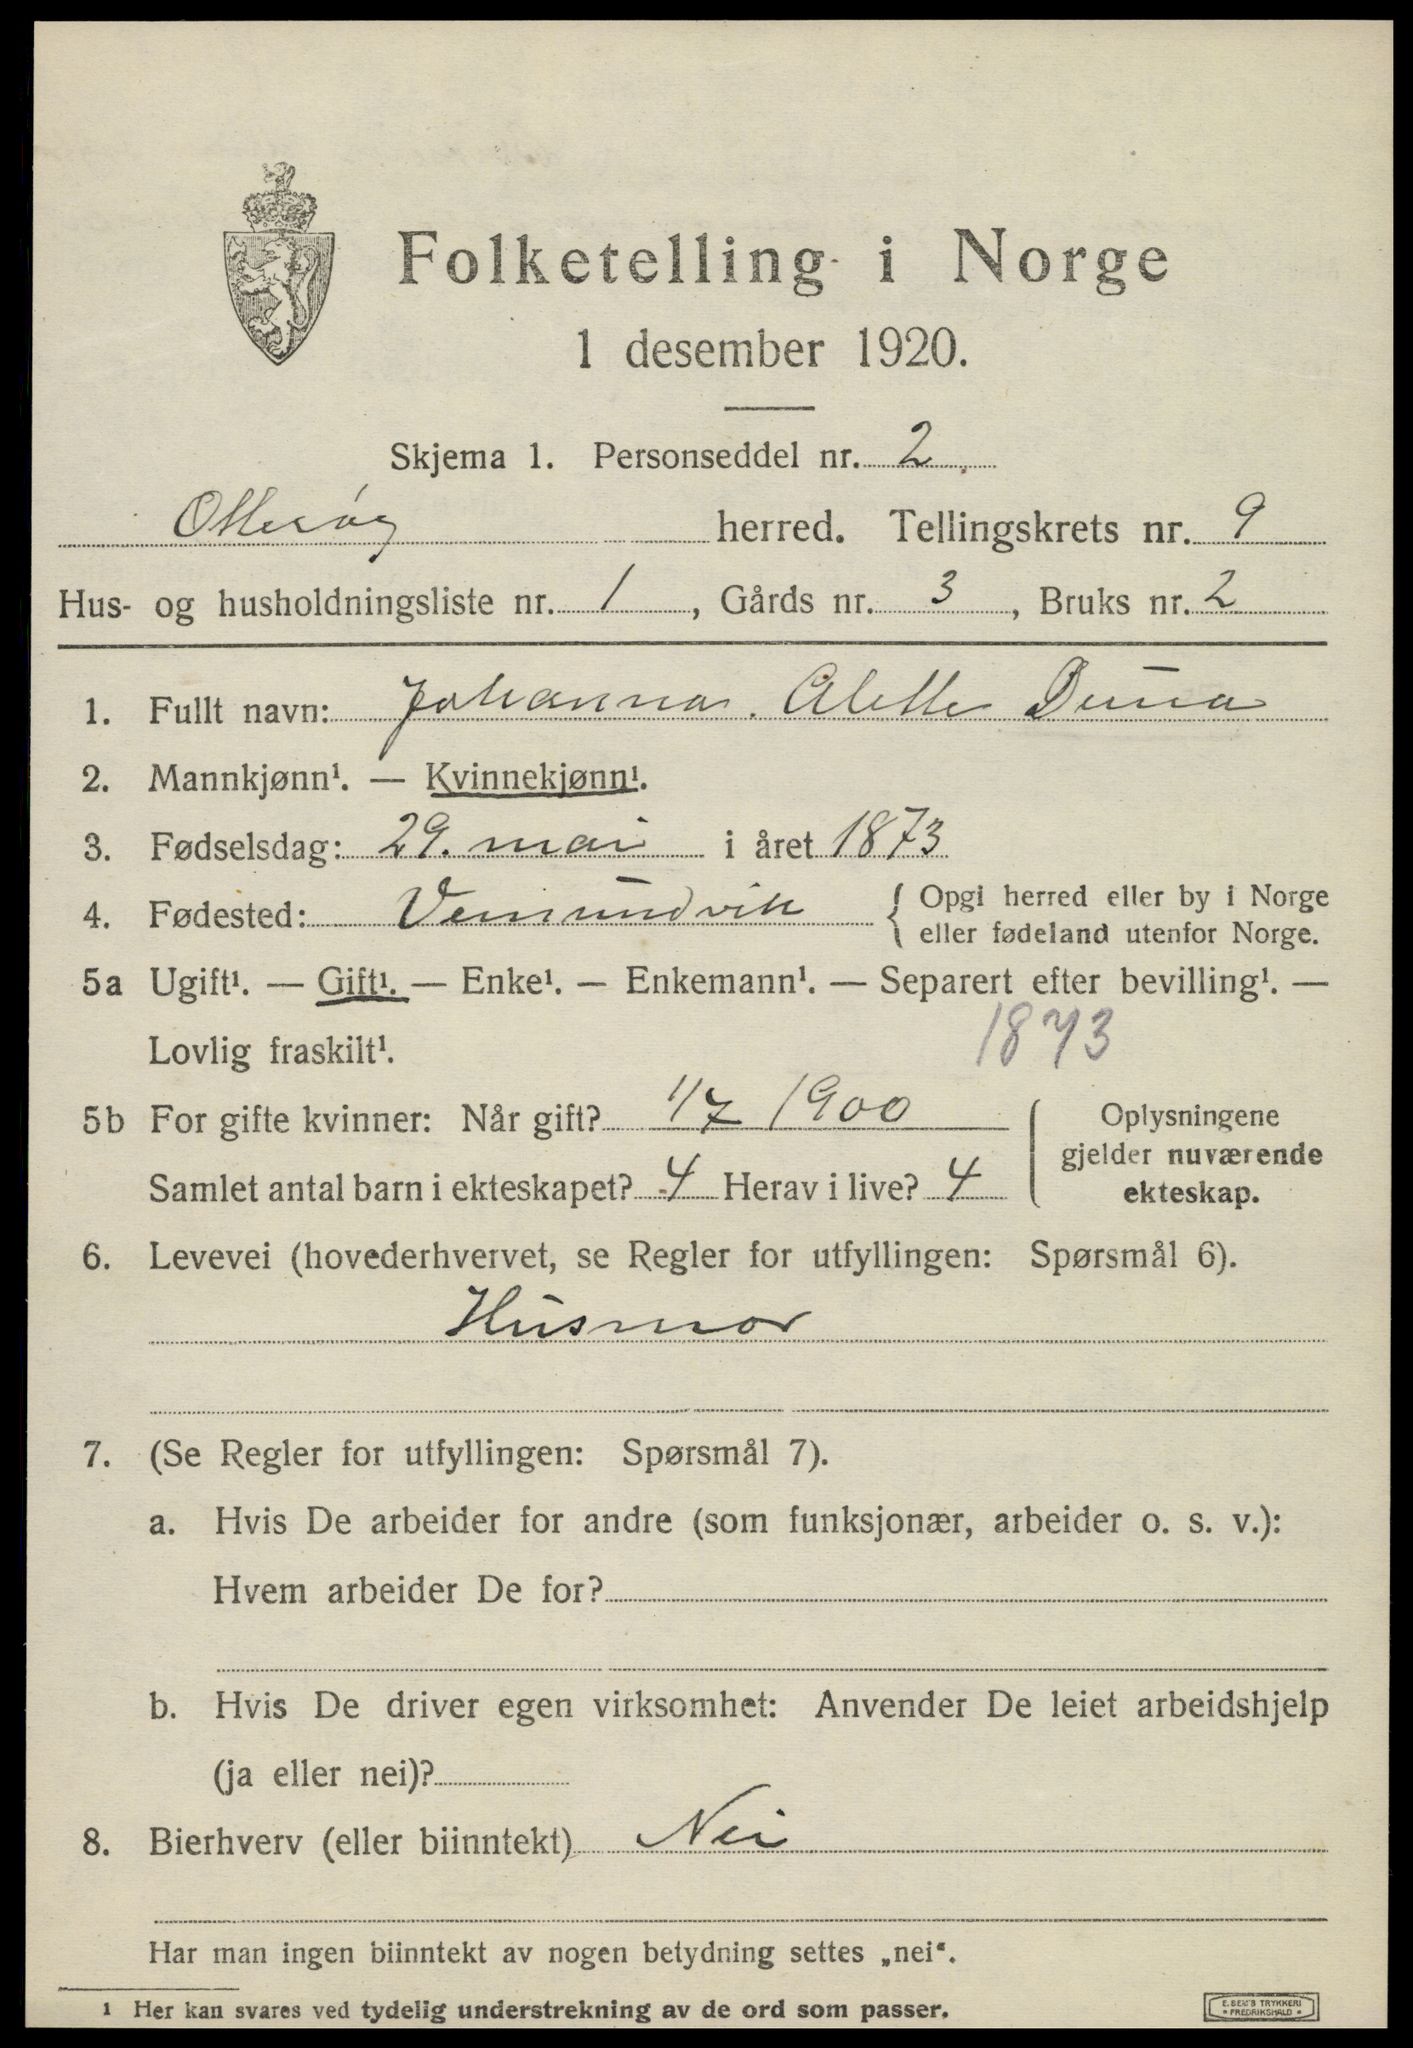 Folketelling i Norge
1 desember 1920.
Skjema 1. Personseddel nr. 2
Otterøy herred. Tellingskrets nr. 9
Hus- og husholdningsliste nr. 1, Gårds nr. 3, Bruks nr. 2
1. Fullt navn: Johanna Alette Duna
2. Mannkjønn¹. — Kvinnekjønn¹.
3. Fødselsdag: 29. mai i året 1873
4. Fødested: Vemundvik { Opgi herred eller by i Norge
eller fødeland utenfor Norge.
5a Ugift¹. — Gift¹. — Enke¹. — Enkemann¹. — Separert efter bevilling¹. —
Lovlig fraskilt¹. 1873
5b For gifte kvinner: Når gift? 1/7 1900 Oplysningene
gjelder nuværende
Samlet antal barn i ekteskapet? 4 Herav i live? 4 ekteskap.
6. Levevei (hovederhvervet, se Regler for utfyllingen: Spørsmål 6).
Husmor
7. (Se Regler for utfyllingen: Spørsmål 7).
a. Hvis De arbeider for andre (som funksjonær, arbeider o. s. v.):
Hvem arbeider De for?
b. Hvis De driver egen virksomhet: Anvender De leiet arbeidshjelp
(ja eller nei)?
8. Bierhverv (eller biinntekt) Nei
Har man ingen biinntekt av nogen betydning settes „nei“.
1 Her kan svares ved tydelig understrekning av de ord som passer.
E. SEM'S TRYKKERI
• FREDRIKSHALD •